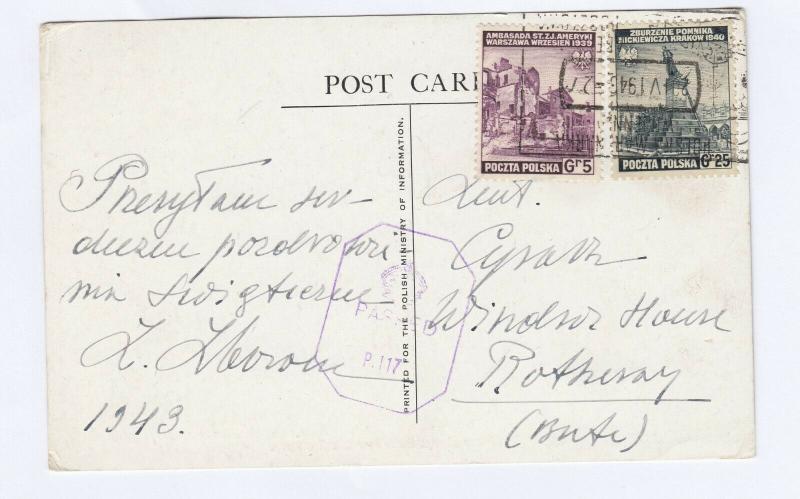 POST CARD
AMBASADA ST. ZJ. AMERYKI
WARSZAWA WRZESIEŃ 1939
POCZTA POLSKA Gr 5
ZBURZENIE POMNIKA
MICKIEWICZA KRAKÓW 1940
POCZTA POLSKA Gr 25
Przesyłam ser-
deczne pozdrowie-
nia świąteczne
1943.
PASSED
P.117
PRINTED FOR THE POLISH MINISTRY OF INFORMATION.
Windsor House
Rothesay
(Bute)